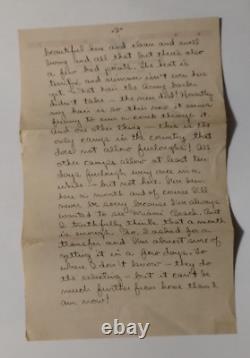 -3-
beautiful here and clean and well
bring and all that but there's also
a few bad points. The heat is
terrific and summer isn't even here
yet. What hair the Army barber
didn't take - the sun did! Honestly
my hair is so thin now it isn't
funny to run a comb through it.
And one other thing - this is the
only camp in the country that
does not allow furloughs! All
other camps allow at least ten
days furlough every once in a
while - but not here. I've been
here a month and of course I'll
never be sorry because I've always
wanted to see Miami Beach. But
I truthfully think that a month
is enough. So, I asked for a
transfer and I'm almost sure of
getting it in a few days. So
where I don't know - they do
the selecting - but it can't be
much further from home than I
am now!